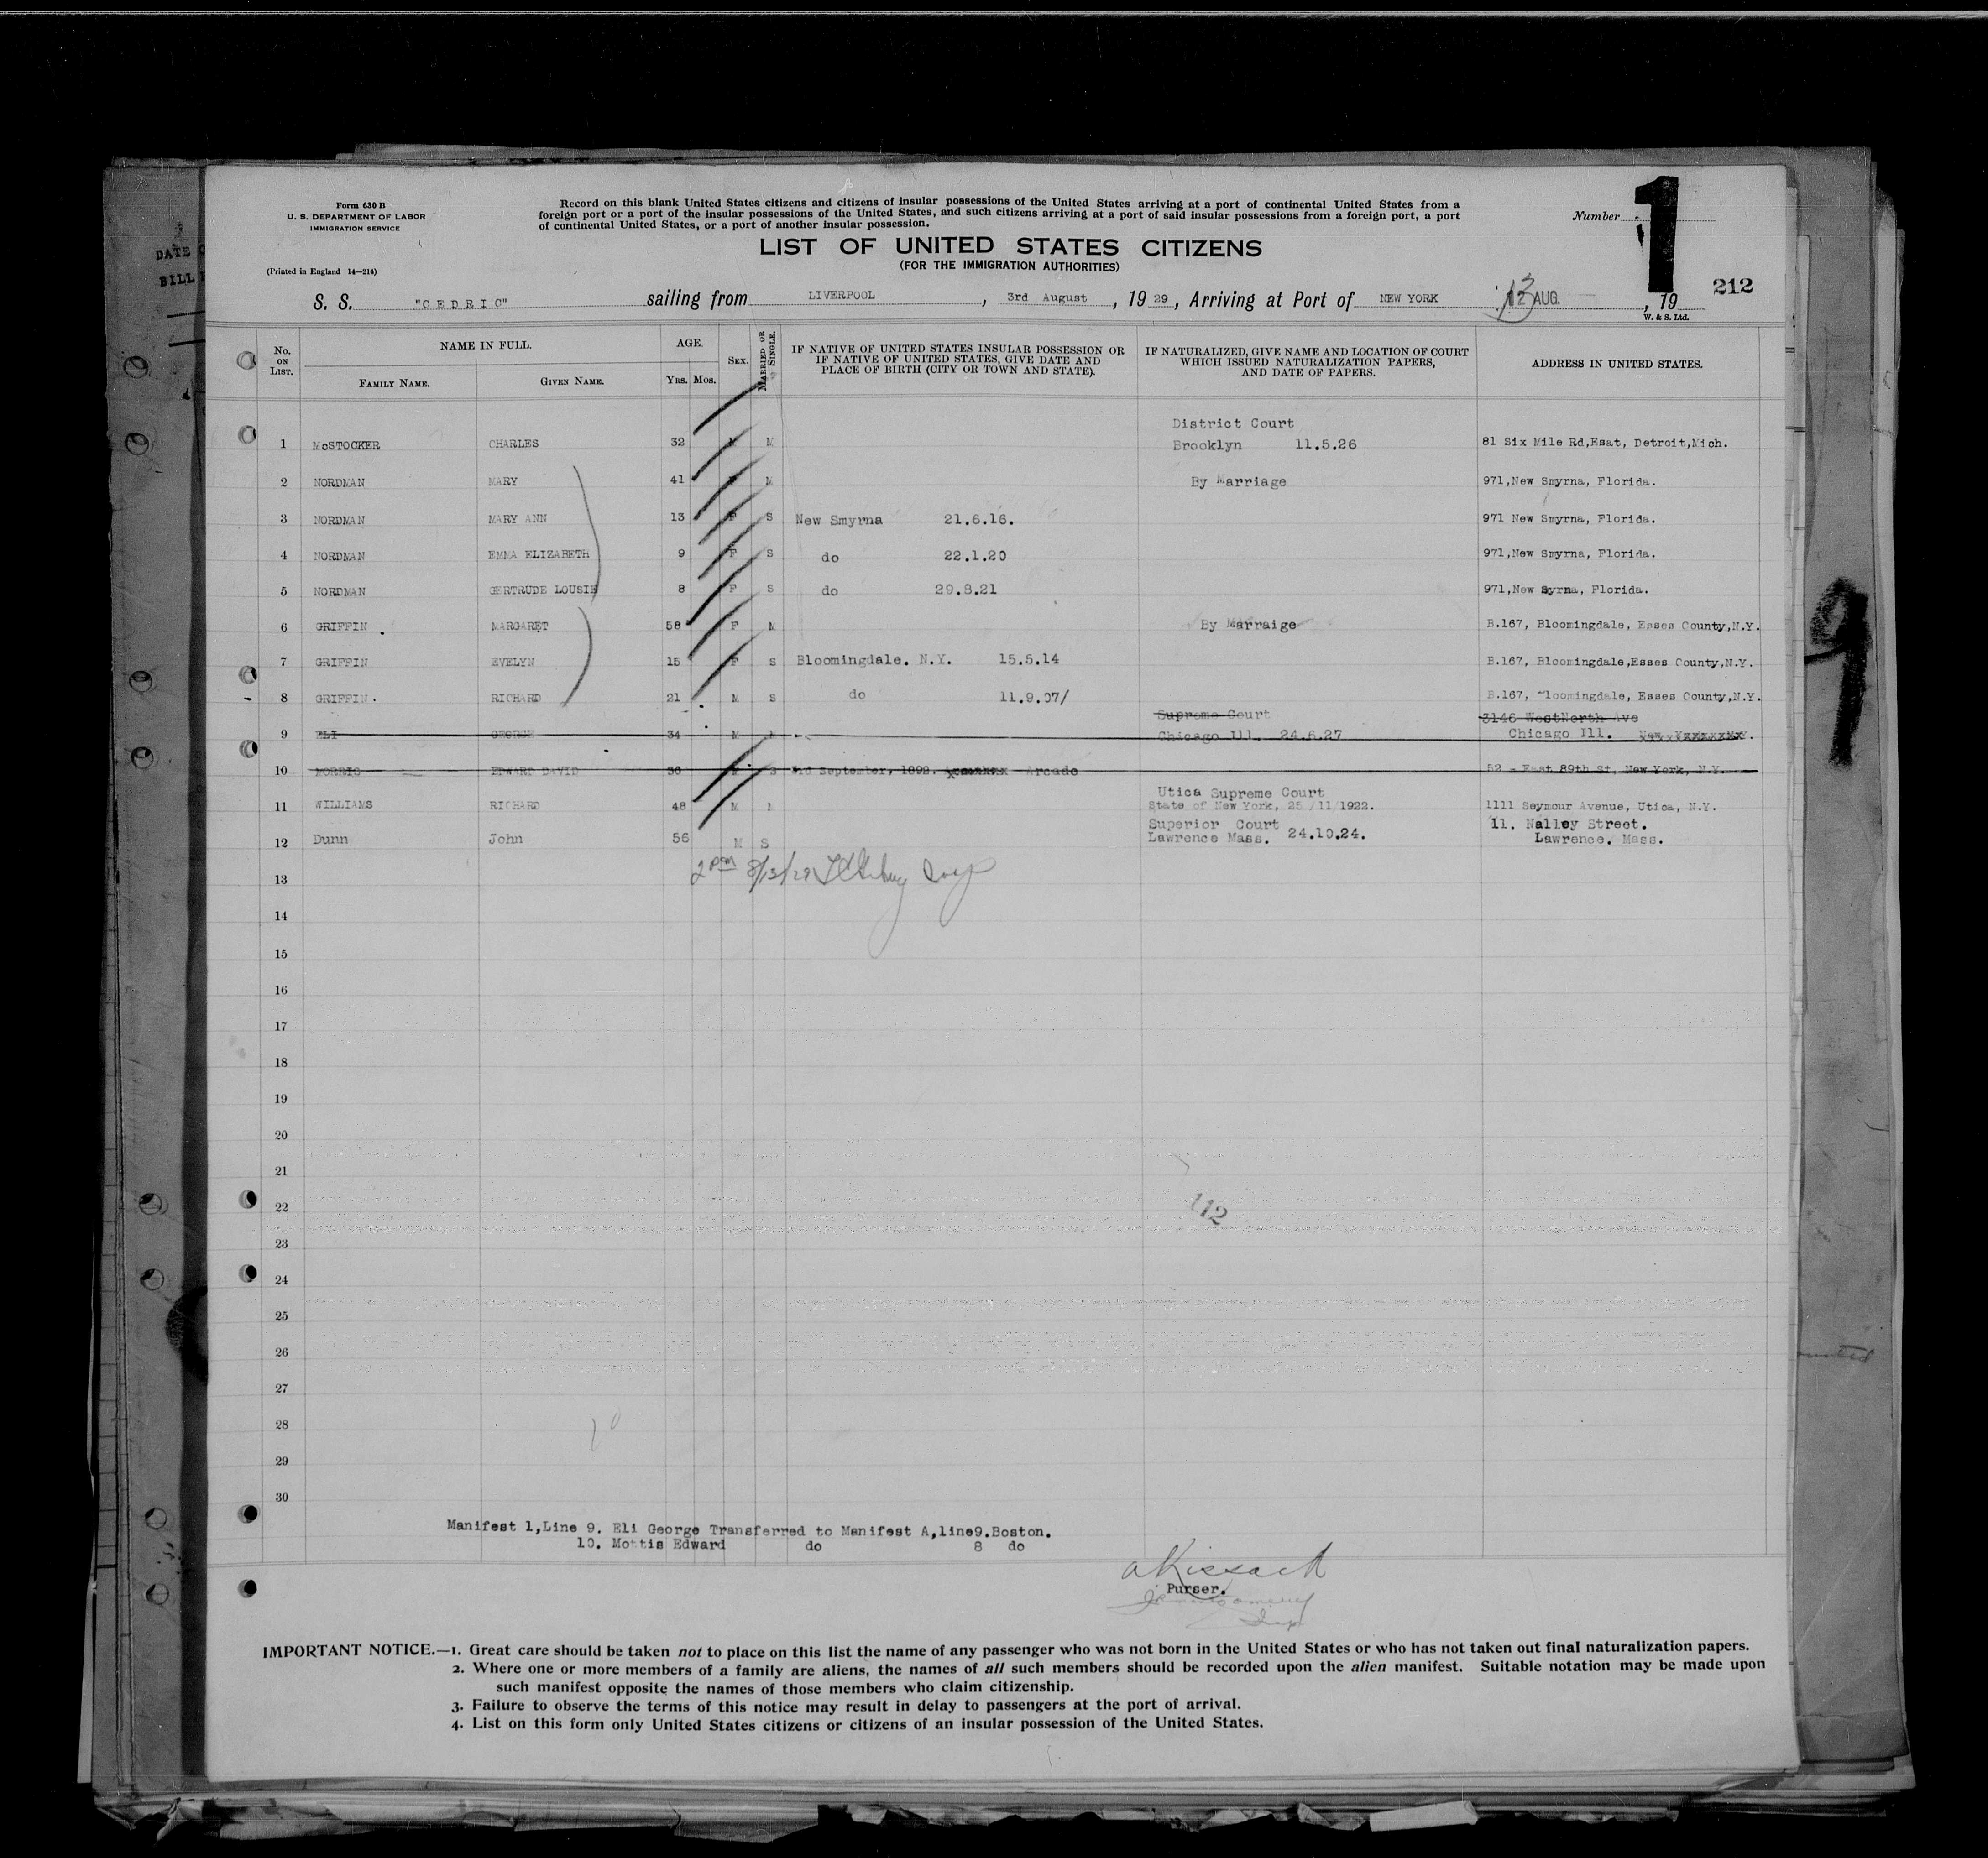 Form 630 B
U. S. DEPARTMENT OF LABOR
IMMIGRATION SERVICE
(Printed in England 14—214)
Record on this blank United States citizens and citizens of insular possessions of the United States arriving at a port of continental United States from a
foreign port or a port of the insular possessions of the United States, and such citizens arriving at a port of said insular possessions from a foreign port, a port
of continental United States, or a port of another insular possession.
Number 1
LIST OF UNITED STATES CITIZENS
(FOR THE IMMIGRATION AUTHORITIES)
212
S. S. "CEDRIC" sailing from LIVERPOOL, 3rd August, 1929, Arriving at Port of NEW YORK 13 AUG., 19
W. & S. Ltd.
No. ON LIST. NAME IN FULL. FAMILY NAME. GIVEN NAME. AGE. YRS. MOS. SEX. MARRIED OR SINGLE. IF NATIVE OF UNITED STATES INSULAR POSSESSION OR IF NATIVE OF UNITED STATES, GIVE DATE AND PLACE OF BIRTH (CITY OR TOWN AND STATE). IF NATURALIZED, GIVE NAME AND LOCATION OF COURT WHICH ISSUED NATURALIZATION PAPERS, AND DATE OF PAPERS. ADDRESS IN UNITED STATES.
District Court
1 McSTOCKER CHARLES 32 M M Brooklyn 11.5.26 81 Six Mile Rd,Esat, Detroit,Mich.
2 NORDMAN MARY 41 F M By Marriage 971,New Smyrna, Florida.
3 NORDMAN MARY ANN 13 F S New Smyrna 21.6.16. 971 New Smyrna, Florida.
4 NORDMAN EMMA ELIZABETH 9 F S do 22.1.20 971,New Smyrna, Florida.
5 NORDMAN GERTRUDE LOUSIE 8 F S do 29.8.21 971,New Syrna, Florida.
6 GRIFFIN . MARGARET 58 F M By Marraige B.167, Bloomingdale, Esses County,N.Y.
7 GRIFFIN EVELYN 15 F S Bloomingdale. N.Y. 15.5.14 B.167, Bloomingdale,Esses County,N.Y.
8 GRIFFIN. RICHARD 21 M S do 11.9.07/ B.167, Bloomingdale, Esses County,N.Y.
Supreme Court 3146 WestNorth Ave
9 ELI GEORGE 34 M M Chicago Ill. 24.6.27 Chicago Ill.
10 MORRIS EDWARD DAVID 36 M S 3rd September, 1892. Arcade 52 - East 89th St, New York, N.Y.
Utica Supreme Court
11 WILLIAMS RICHARD 48 M M State of New York, 25/11/1922. 1111 Seymour Avenue, Utica, N.Y.
Superior Court 11. Nalley Street.
12 Dunn John 56 M S Lawrence Mass. 24.10.24. Lawrence. Mass.
13 2 PM 8/13/29
14
15
16
17
18
19
20
21
22
112
23
24
25
26
27
28
29
30
Manifest 1,Line 9. Eli George Transferred to Manifest A,line9.Boston.
10. Mottis Edward do 8 do
A Kissack
Purser.
IMPORTANT NOTICE.—1. Great care should be taken not to place on this list the name of any passenger who was not born in the United States or who has not taken out final naturalization papers.
2. Where one or more members of a family are aliens, the names of all such members should be recorded upon the alien manifest. Suitable notation may be made upon
such manifest opposite the names of those members who claim citizenship.
3. Failure to observe the terms of this notice may result in delay to passengers at the port of arrival.
4. List on this form only United States citizens or citizens of an insular possession of the United States.